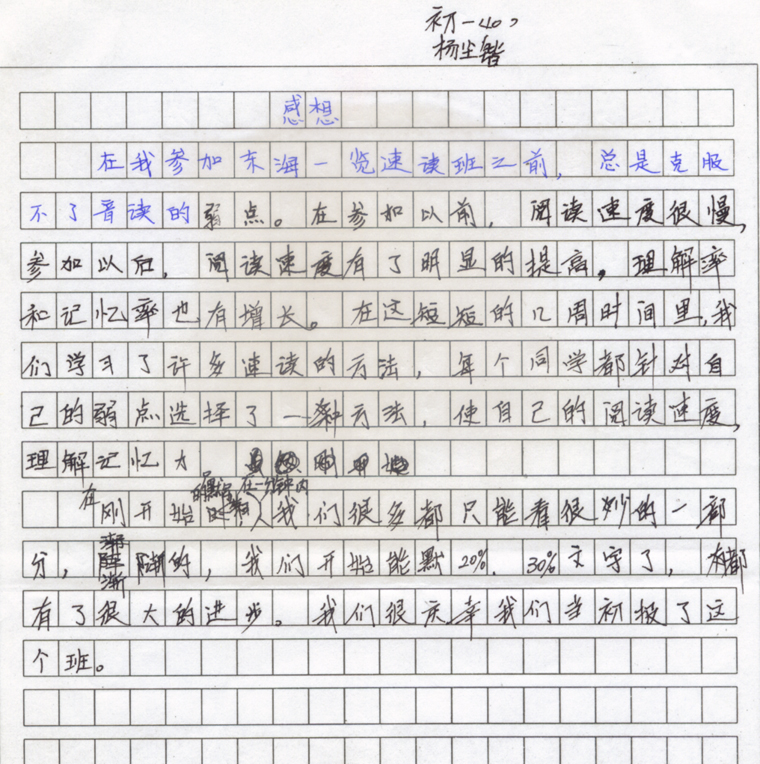 初一（10）
杨尘
感想
在我参加东海一览速读班之前，总是克服
不了音读的弱点。在参加以前，阅读速度很慢，
参加以后，阅读速度有了明显的提高，理解率
和记忆率也有增长。在这短短的几周时间里，我
们学习了许多速读的方法，每个同学都针对自
己的弱点选择了一种方法，使自己的阅读速度，
理解记忆力
在刚开始的时候，在一分钟内我们很多都只能看很少的一部
分，渐渐的，我们开始能默20%、30%文字了，都
有了很大的进步。我们很庆幸我们当初报了这
个班。